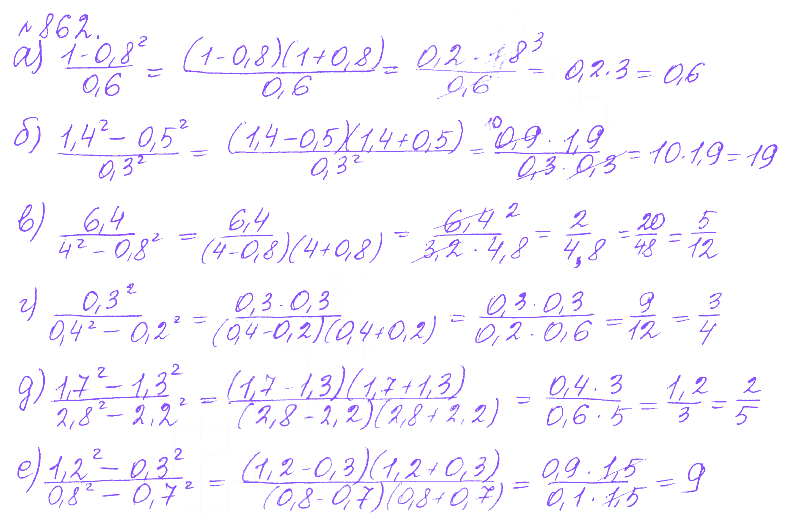 №862.
а) (1 - 0,8²)/0,6 = ((1-0,8)(1+0,8))/0,6 = (0,2 · 1,8³)/0,6 = 0,2·3 = 0,6
б) (1,4² - 0,5²)/0,3² = ((1,4-0,5)(1,4+0,5))/0,3² = (¹⁰0,9 · 1,9)/(0,3 · 0,3) = 10·1,9 = 19
в) 6,4/(4² - 0,8²) = 6,4/((4-0,8)(4+0,8)) = 6,4²/(3,2 · 4,8) = 2/4,8 = 20/48 = 5/12
г) 0,3²/(0,4² - 0,2²) = (0,3·0,3)/((0,4-0,2)(0,4+0,2)) = (0,3·0,3)/(0,2·0,6) = 9/12 = 3/4
д) (1,7² - 1,3²)/(2,8² - 2,2²) = ((1,7-1,3)(1,7+1,3))/((2,8-2,2)(2,8+2,2)) = (0,4·3)/(0,6·5) = 1,2/3 = 2/5
е) (1,2² - 0,3²)/(0,8² - 0,7²) = ((1,2-0,3)(1,2+0,3))/((0,8-0,7)(0,8+0,7)) = (0,9·1,5)/(0,1·1,5) = 9